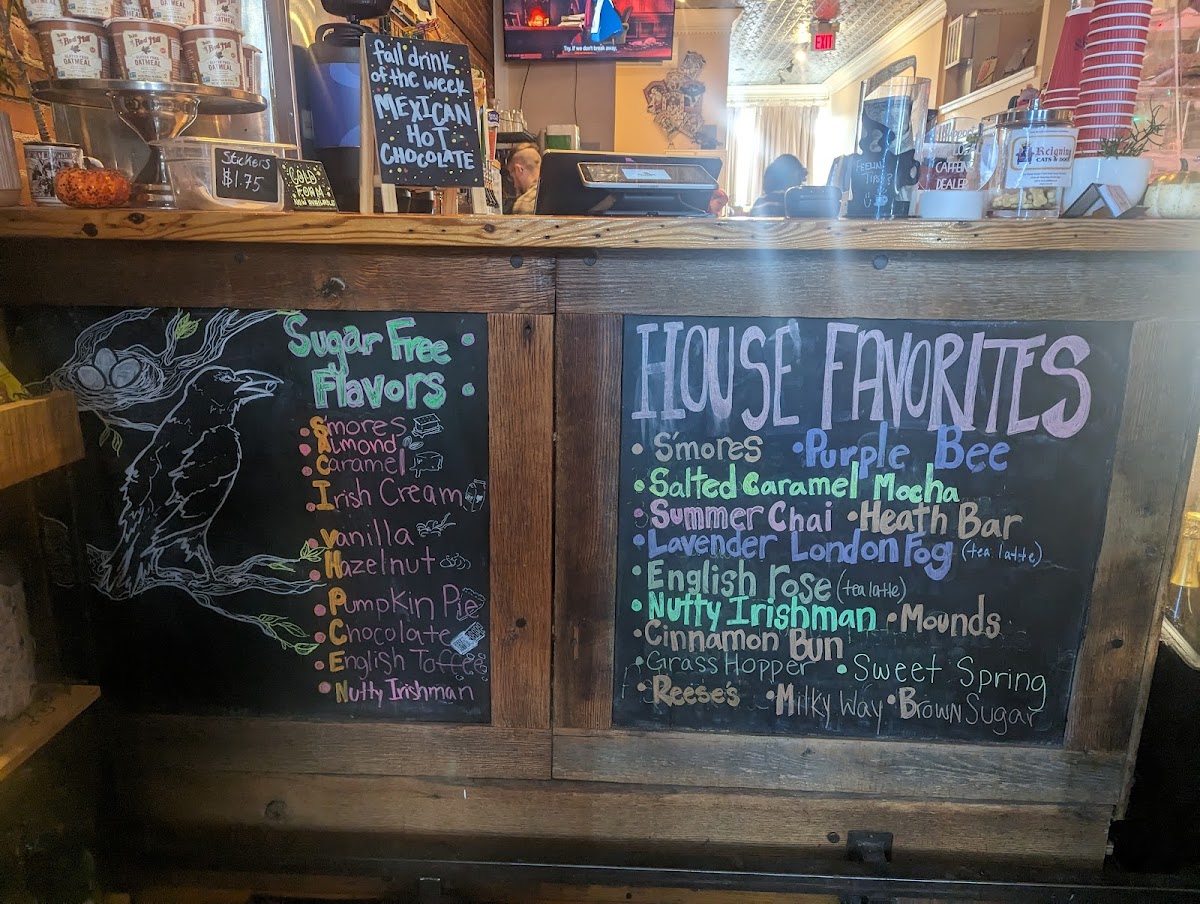 Red Mill
OATMEAL
fall drink
of the week
MEXICAN
HOT
CHOCOLATE
Try. If we don't break away.
EXIT
Stickers
$1.75
COLD
FOAM
LOCAL
CAFFEINE
DEALER
Reigning
CATS & DOGS
FEELIN'
TIPSY?
Sugar Free
Flavors
S'mores
Almond
Caramel
Irish Cream
Vanilla
Hazelnut
Pumpkin Pie
Chocolate
English Toffee
Nutty Irishman
HOUSE FAVORITES
• S'mores • Purple Bee
• Salted Caramel Mocha
• Summer Chai • Heath Bar
• Lavender London Fog (tea latte)
• English rose (tea latte)
• Nutty Irishman • Mounds
• Cinnamon Bun
• GrassHopper • Sweet Spring
• Reese's • Milky Way • Brown Sugar